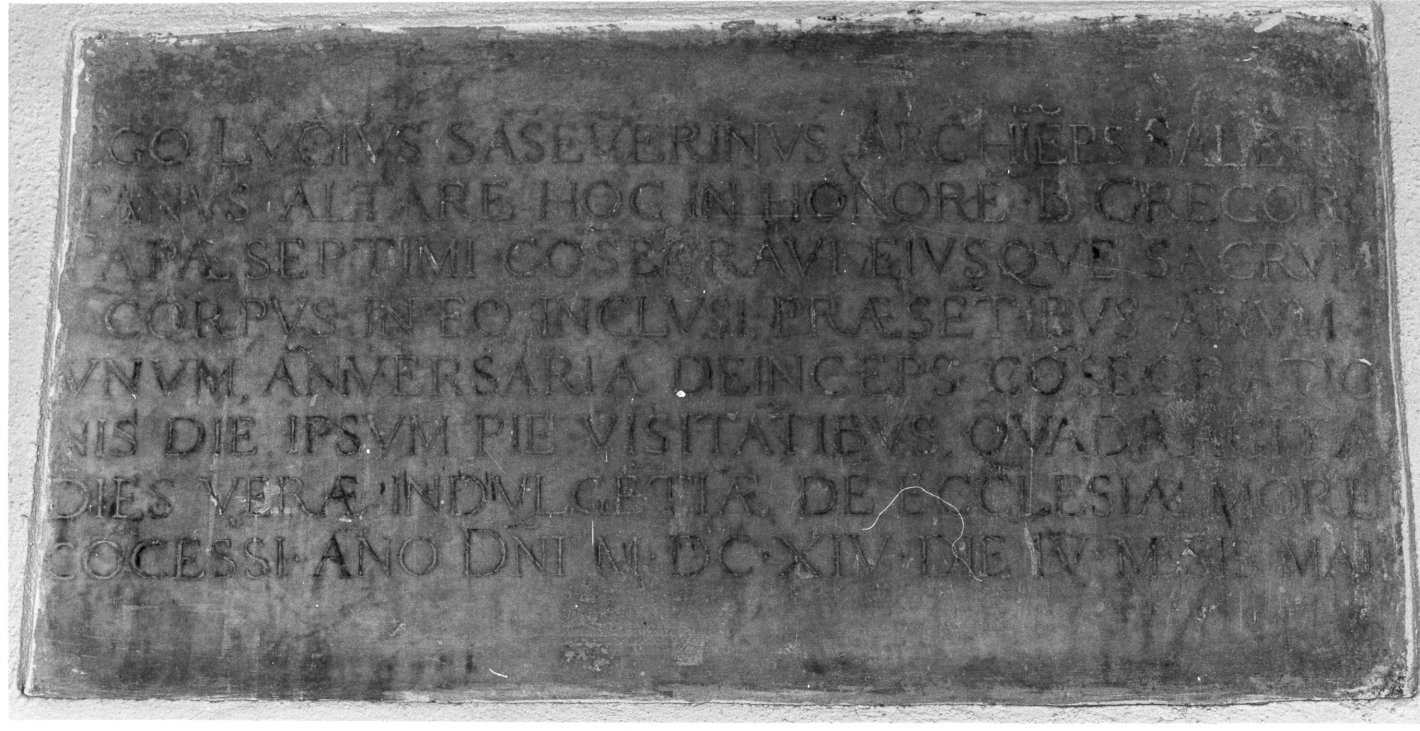 EGO LVCIVS SASEVERINVS ARCHIEPS SALERN
TANVS ALTARE HOC IN HONORE · B · GREGORI
PAPÆ SEPTIMI COSECRAVI EIVSQVE SACRVM
CORPVS IN EO INCLVSI PRÆSETIBVS ANVM
VNVM, ANVERSARIA DEINCEPS COSECRATIO
NIS DIE IPSVM PIE VISITATIBVS QVADRAGITA
DIES VERÆ INDVLGETIÆ DE ECCLESIÆ MORE
COCESSI · ANO DNI M · DC · XIV · DIE IV MAII